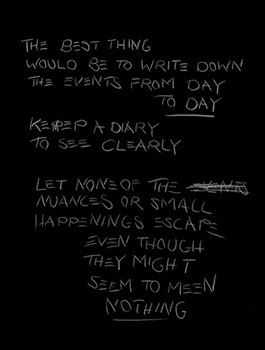 THE BEST THING
WOULD BE TO WRITE DOWN
THE EVENTS FROM DAY
TO DAY
KEEP A DIARY
TO SEE CLEARLY
LET NONE OF THE
NUANCES OR SMALL
HAPPENINGS ESCAPE
EVEN THOUGH
THEY MIGHT
SEEM TO MEEN
NOTHING